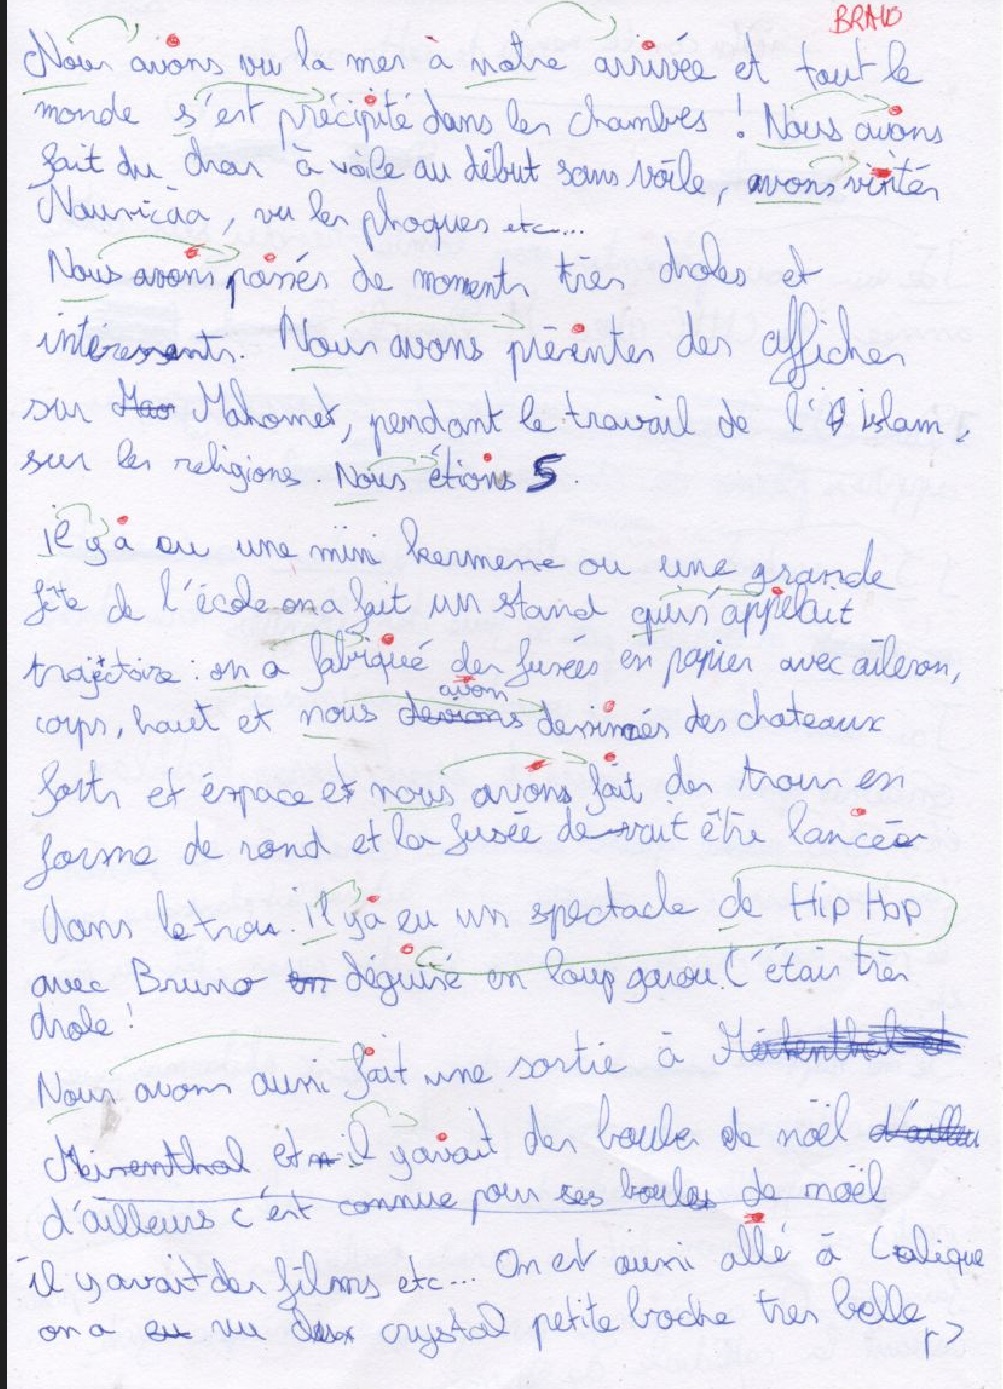 BRAVO
Nous avons vu la mer à notre arrivée et tout le
monde s'est précipité dans les chambres ! Nous avons
fait du char à voile au début sans voile, avons visités
Nausicàa, vu les phoques etc...
Nous avons passés de moments très droles et
intéressants. Nous avons présentés des affiches
sur Mahomet, pendant le travail de l'islam,
sur les religions. Nous étions 5.
il y a eu une mini kermesse ou une grande
fête de l'école on a fait un stand qui s'appelait
trajectoire : on a fabriqué des fusées en papier avec aileron,
corps, haut et nous avons dessinés des chateaux
forts et éspace et nous avons fait des trous en
forme de rond et la fusée devait être lancée
dans le trou. il y a eu un spectacle de Hip Hop
avec Bruno déguisé en loup garou. C'était très
drole !
Nous avons aussi fait une sortie à
Meisenthal et il y avait des boules de noël
d'ailleurs c'est connue pour ses boules de noël
il y avait des films etc... On est aussi allé à
on a vu crystal petite très belle